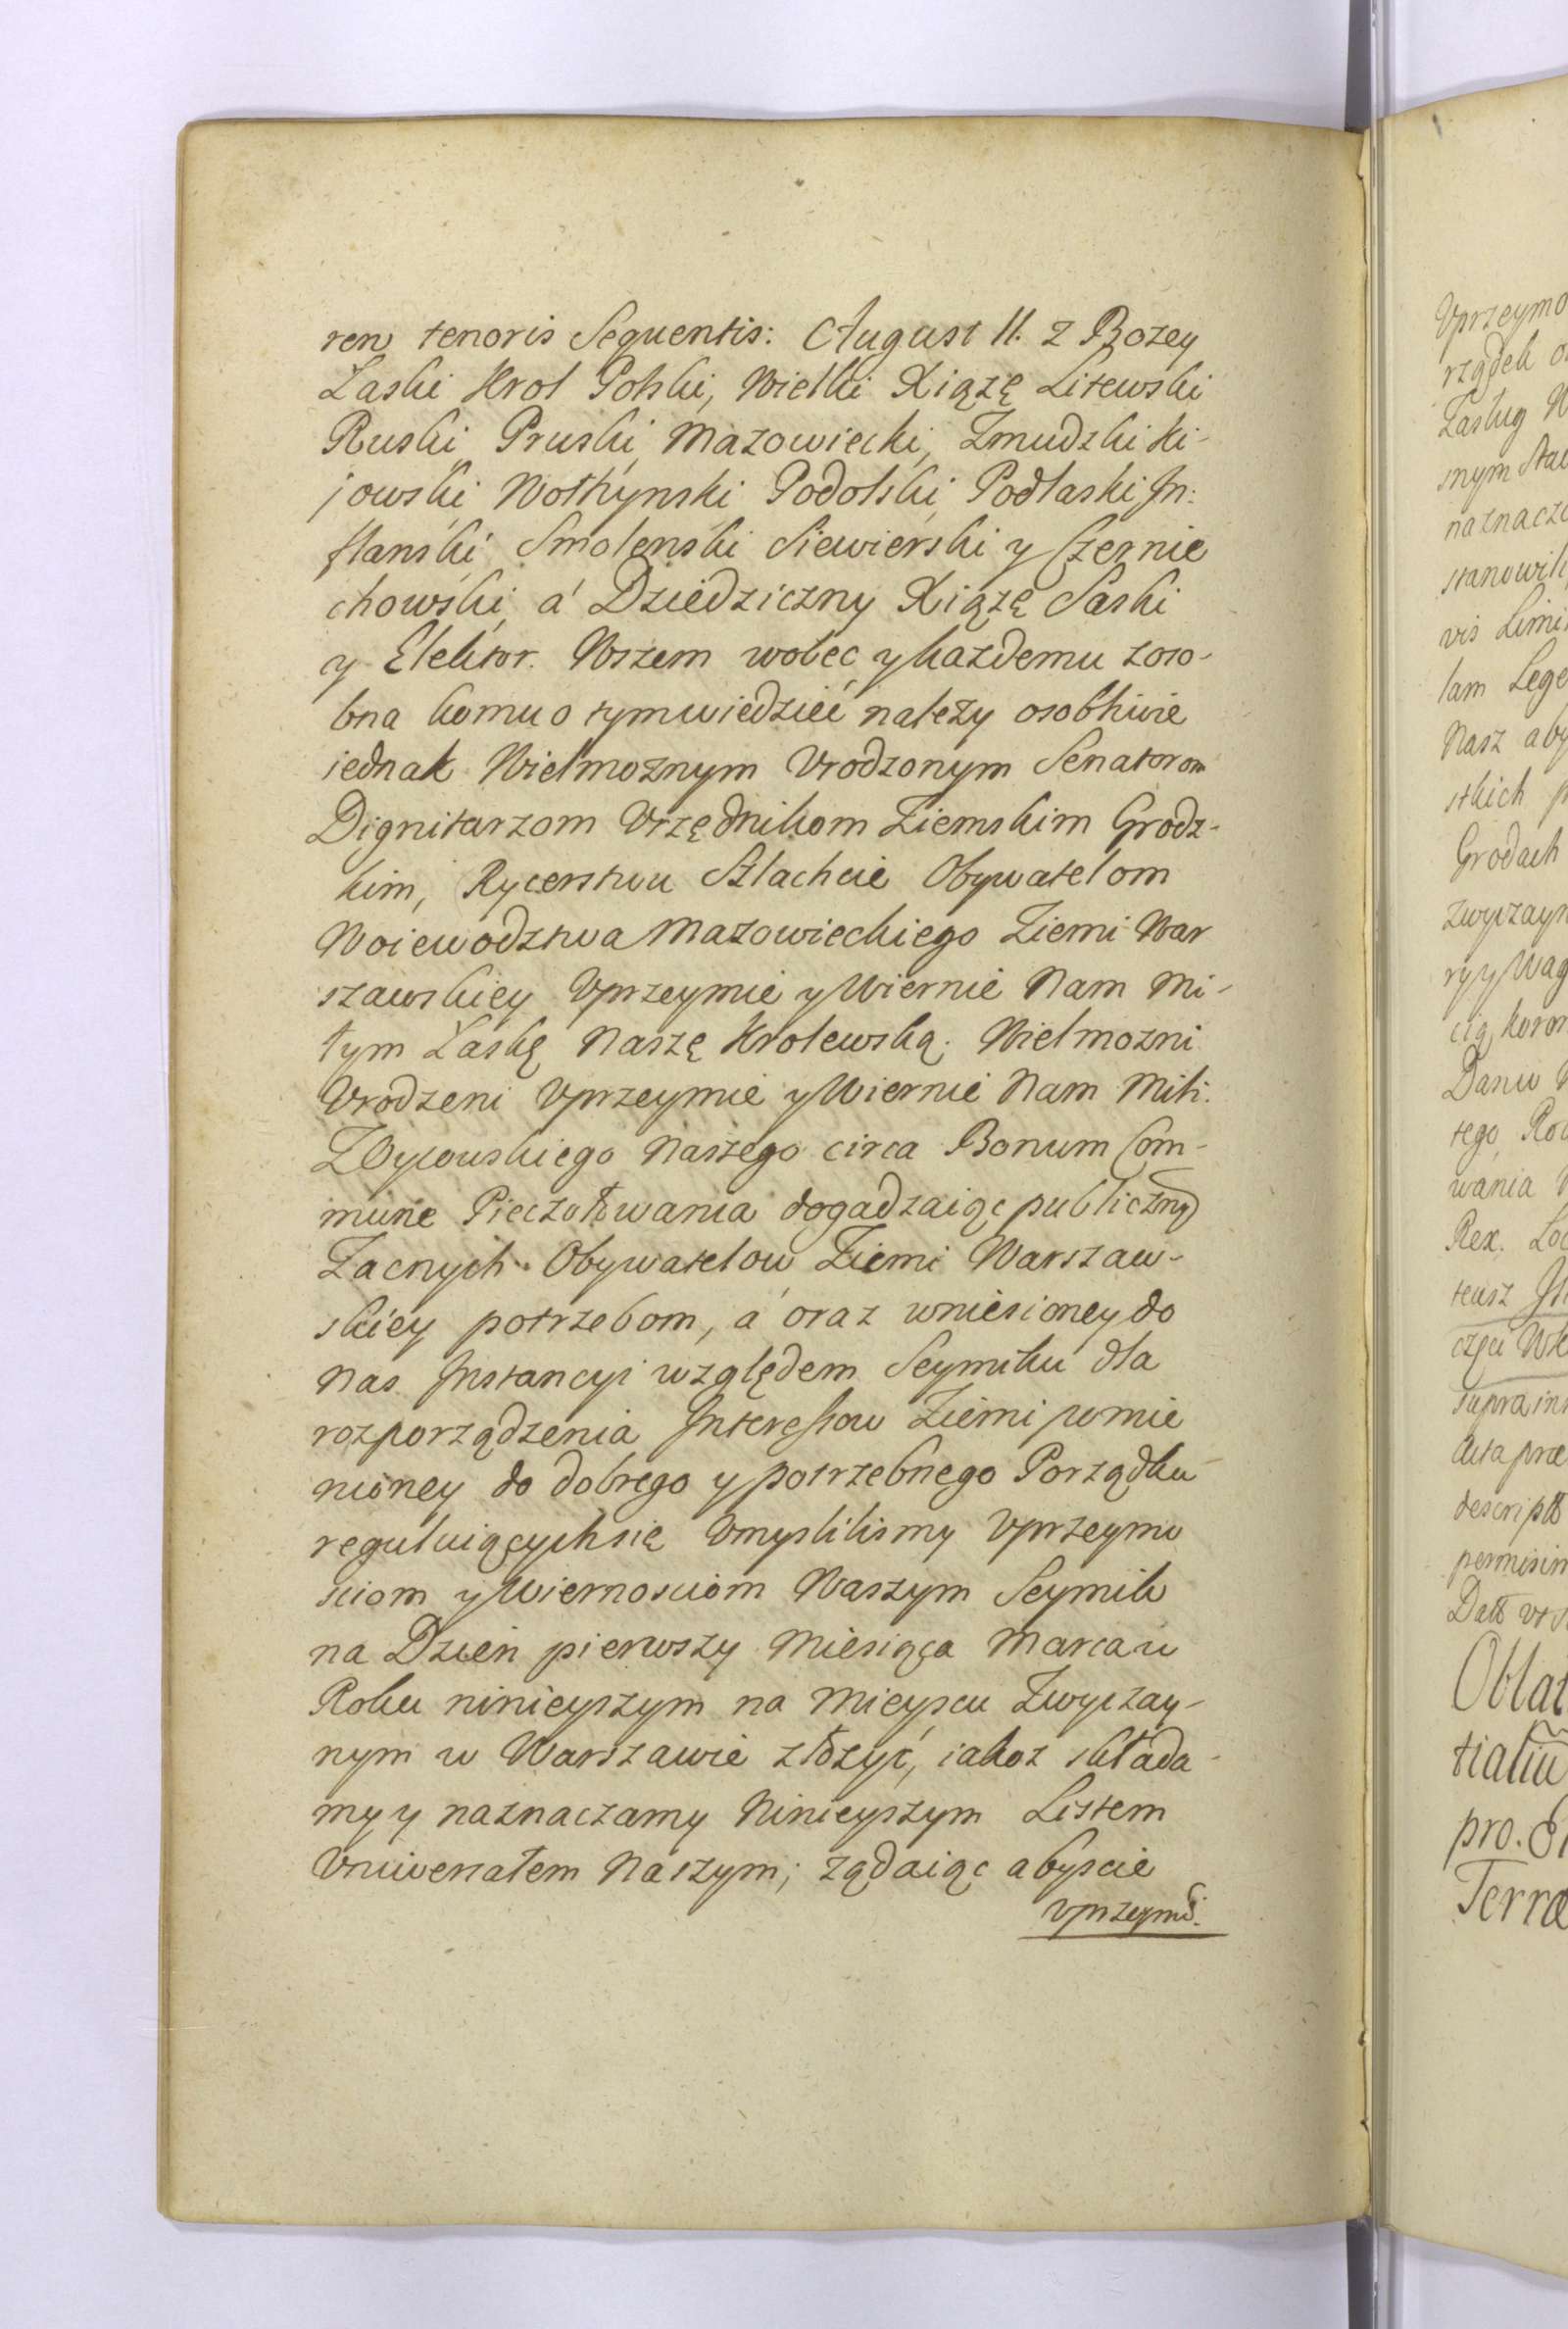 ren tenoris Sequentis: August II. z Bozey
Łaski Krol Polski, Wielki Xiążę Litewski
Ruski Pruski, Mazowiecki, Zmudzki Ki-
jowski Wołhynski Podolski, Podlaski In:
flanski, Smolenski Siewierski y Czernie
chowski, á Dziedziczny Xiążę Saski
y Elektor. Wszem wobec y kazdemu zoso-
bna komu o tym wiedzieć nalezy osobliwie
iednak Wielmoznym Vrodzonym Senatorom
Dignitarzom Vrzędnikom Ziemskim Grodz-
kim, Rycerstwu Szlachcie Obywatelom
Woiewodztwa Mazowieckiego Ziemi War
szawskiey Vprzeymie y Wiernie Nam Mi-
łym Łaskę Naszę Krolewską. Wielmozni
Vrodzeni Vprzeymie y Wiernie Nam Mili.
Z Oycowskiego Naszego circa Bonum Com-
mune Pieczołowania dogadzaiąc publiczny
Zacnych Obywatelow Ziemi Warszaw-
skiey potrzebom, á oraz wniesioney do
Nas Instancyi względem Seymiku dla
rozporządzenia Interessow Ziemi pomie
nioney do dobrego y potrzebnego Porządku
reguluiących się Vmyslilismy Vprzeymo
sciom y Wiernosciom Waszym Seymik
na Dzien pierwszy Miesiąca Marca w
Roku ninieyszym na Mieyscu Zwyczay-
nym w Warszawie złozyć, iakoz składa-
my y naznaczamy Ninieyszym Listem
Vniwersałem Naszym; ządaiąc abyscie
vprzeymś.
Vprzeymo
rządek
Zasług
snym
naznacz
stanowili
vis
lam Lege
Nasz aby
stkich
Grodach
zwyczayn
ry y Wag
cią koron
Danu
tego
wania
Rex.
teusz
części
supra
Acta præ
descript
permisim
Dat
Oblat
tialiū
pro.
Terræ